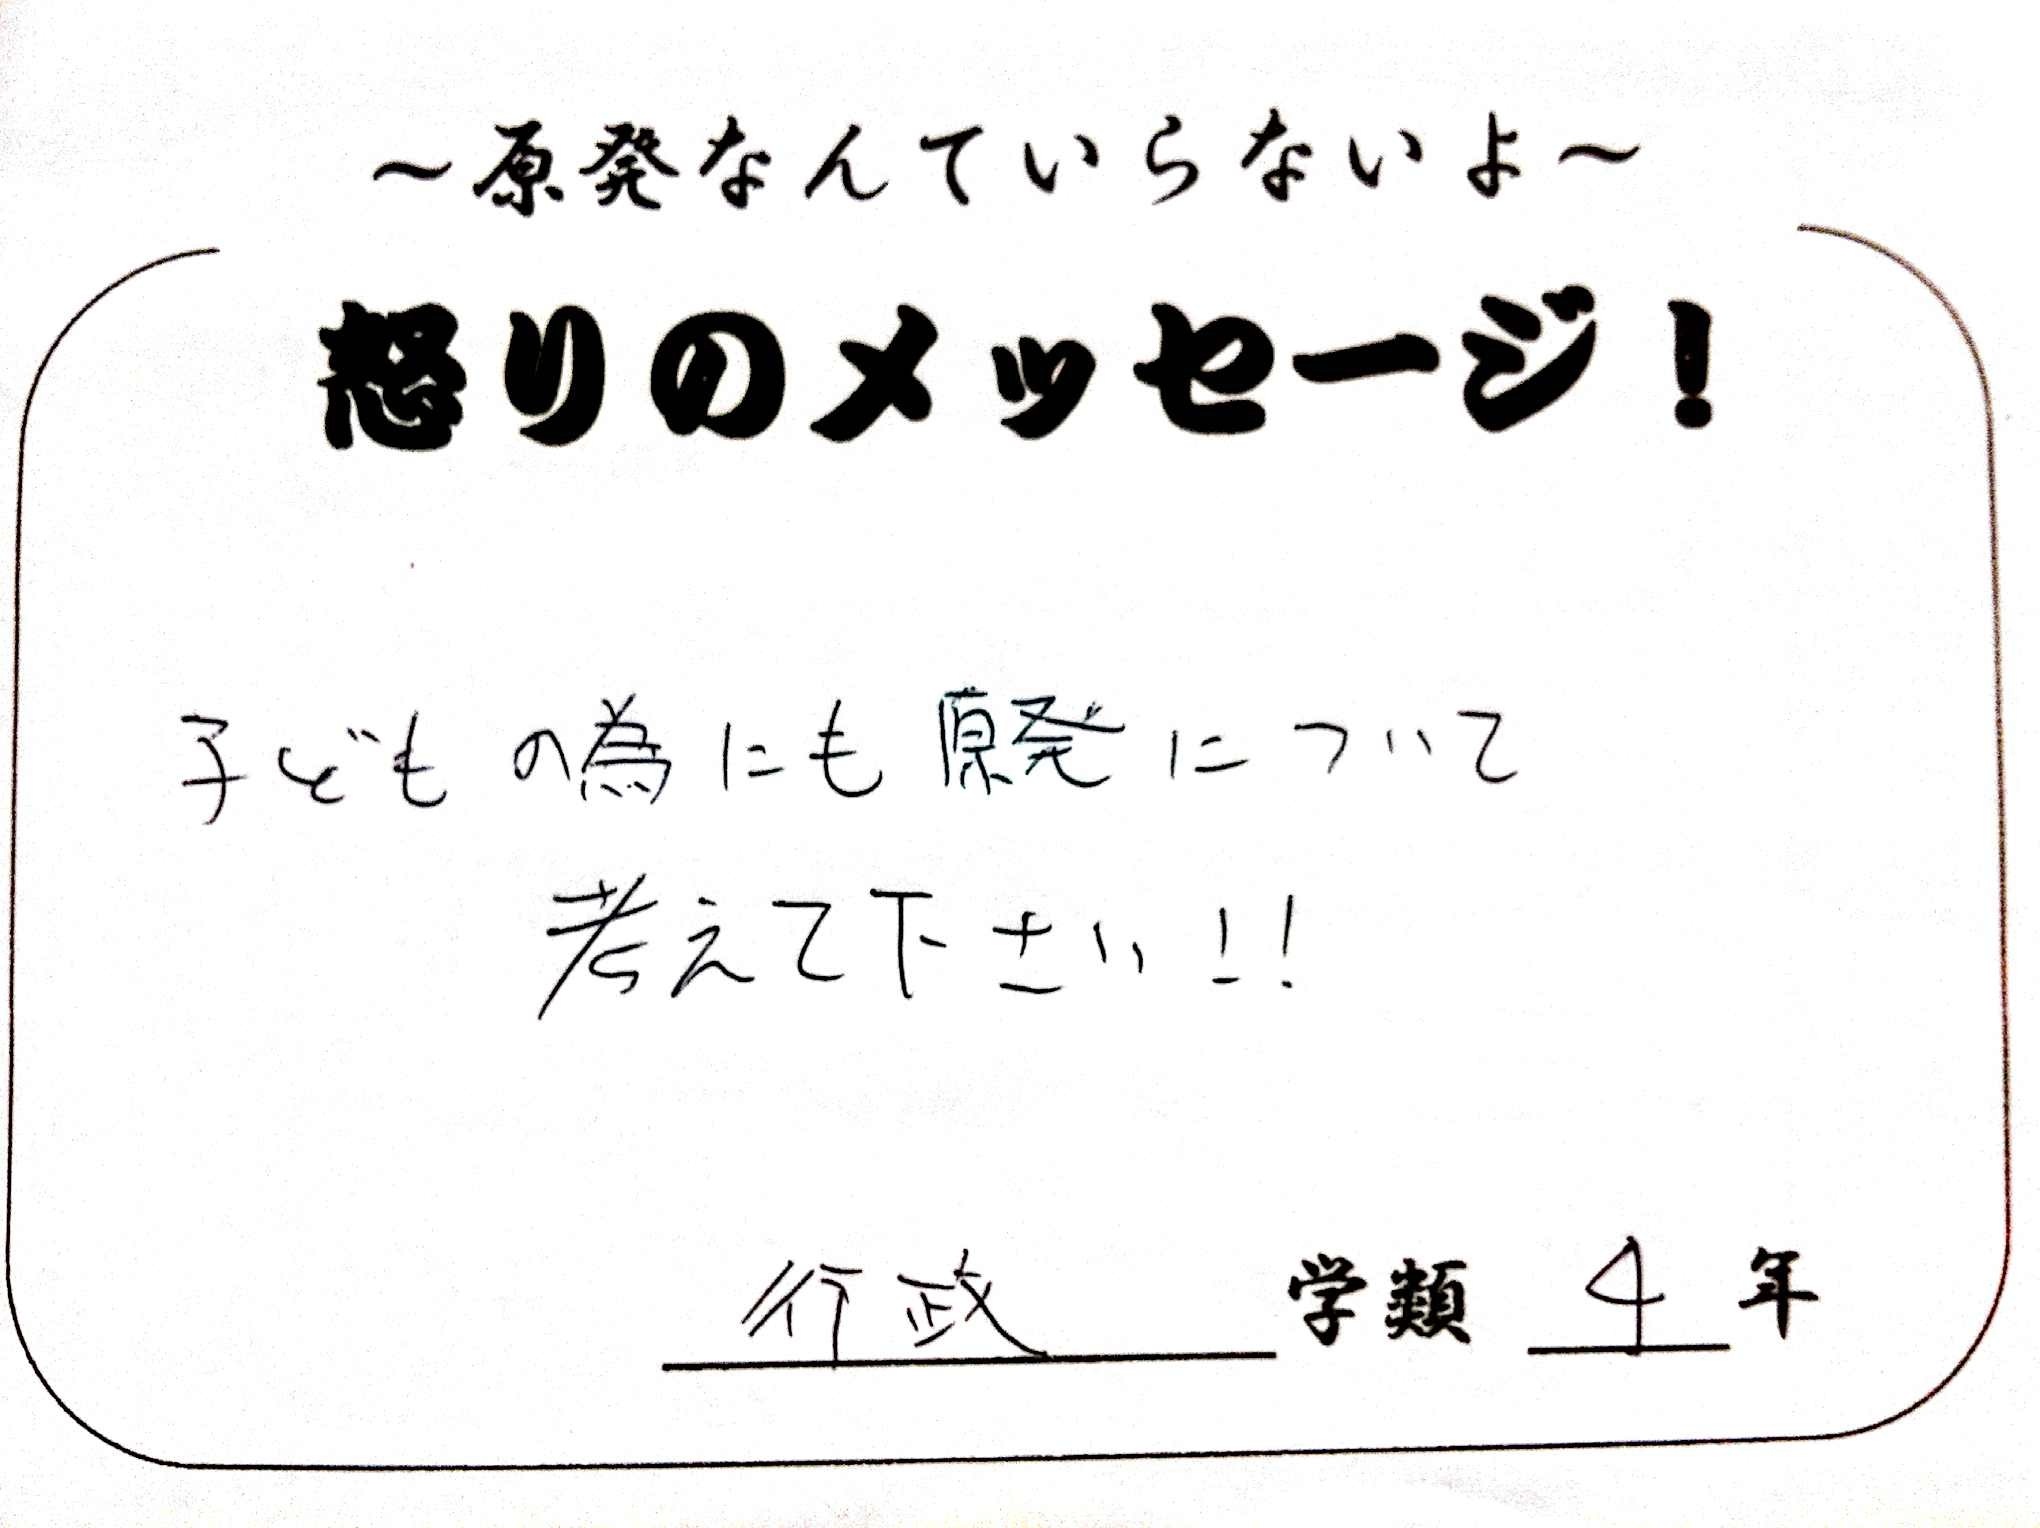 ～原発なんていらないよ～
怒りのメッセージ！
子どもの為にも原発について
考えて下さい！！
行政学類4年